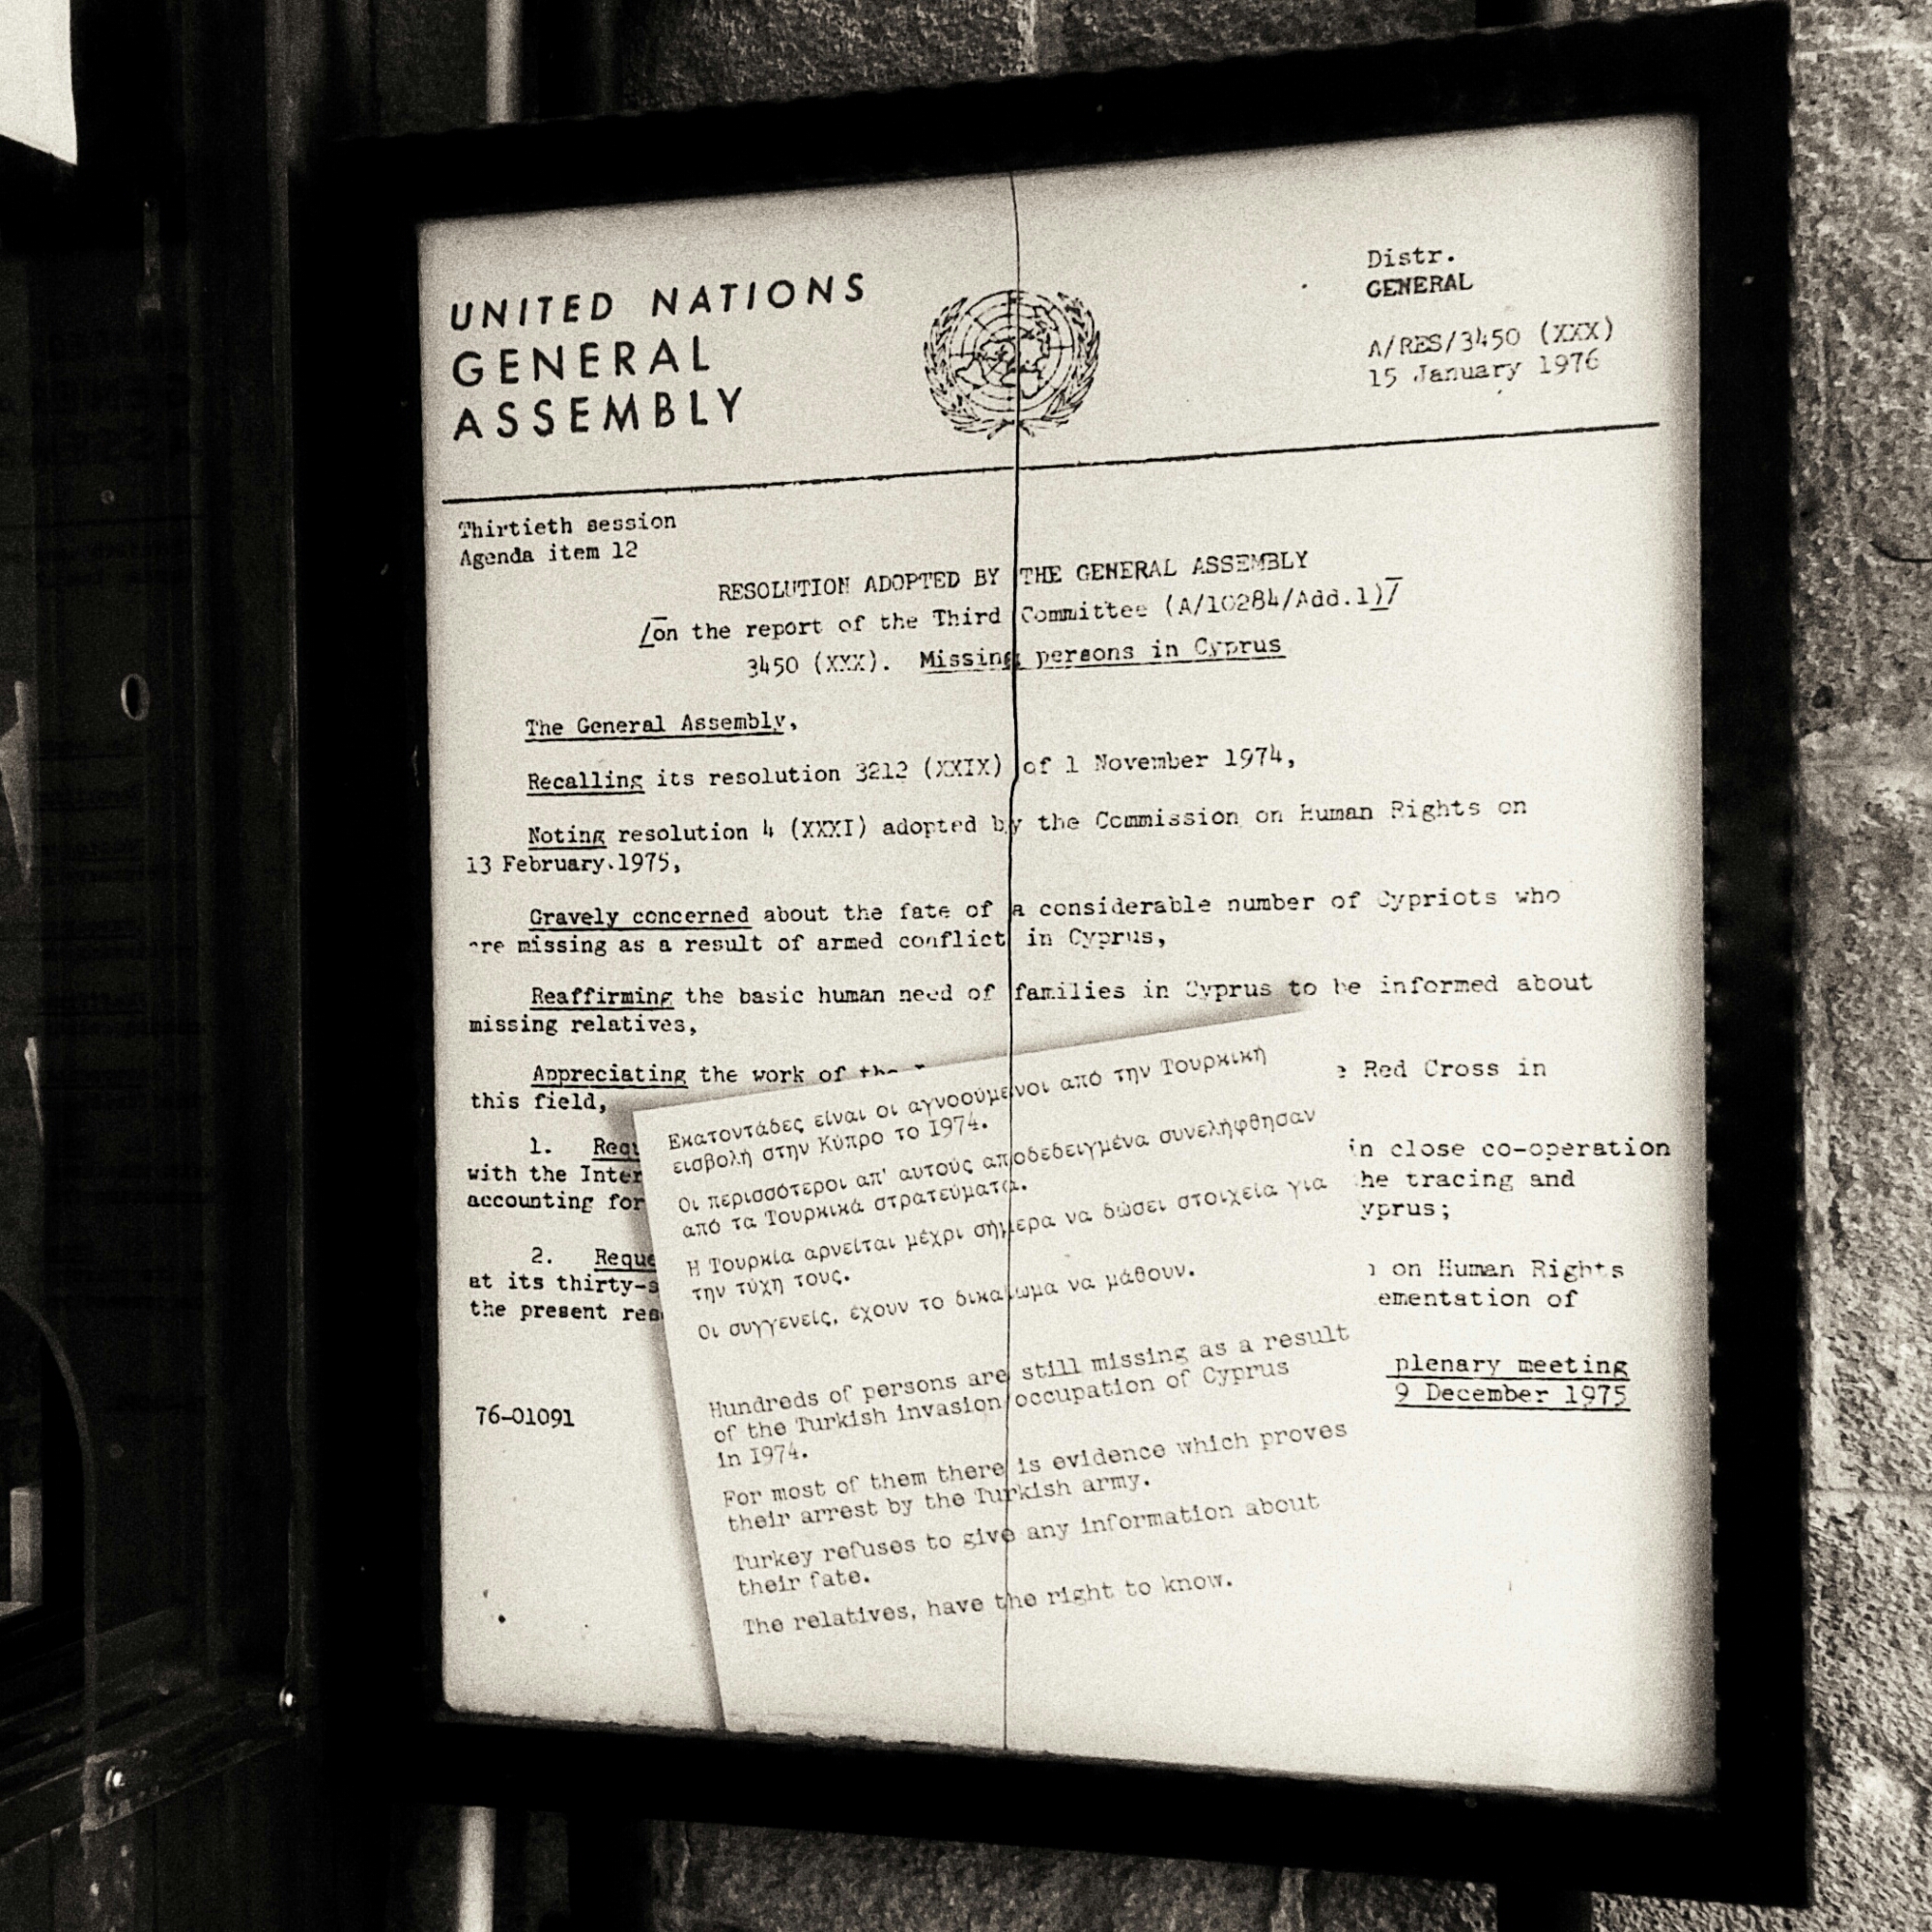 UNITED NATIONS
GENERAL
ASSEMBLY
Distr.
GENERAL
A/RES/3450 (XXX)
15 January 1976
Thirtieth session
Agenda item 12
RESOLUTION ADOPTED BY THE GENERAL ASSEMBLY
/on the report of the Third Committee (A/10284/Add.1)/
3450 (XXX). Missing persons in Cyprus
The General Assembly,
Recalling its resolution 3212 (XXIX) of 1 November 1974,
Noting resolution 4 (XXXI) adopted by the Commission on Human Rights on
13 February.1975,
Gravely concerned about the fate of a considerable number of Cypriots who
are missing as a result of armed conflict in Cyprus,
Reaffirming the basic human need of families in Cyprus to be informed about
missing relatives,
Appreciating the work of the Red Cross in
this field,
1. Requ in close co-operation
with the Inter he tracing and
accounting for yprus;
2. Reque on Human Rights
at its thirty-s ementation of
the present res
plenary meeting
9 December 1975
76-01091
Εκατοντάδες είναι οι αγνοούμενοι από την Τουρκική
εισβολή στην Κύπρο το 1974.
Οι περισσότεροι απ' αυτούς αποδεδειγμένα συνελήφθησαν
από τα Τουρκικά στρατεύματα.
Η Τουρκία αρνείται μέχρι σήμερα να δώσει στοιχεία για
την τύχη τους.
Οι συγγενείς, έχουν το δικαίωμα να μάθουν.
Hundreds of persons are still missing as a result
of the Turkish invasion/occupation of Cyprus
in 1974.
For most of them there is evidence which proves
their arrest by the Turkish army.
Turkey refuses to give any information about
their fate.
The relatives, have the right to know.